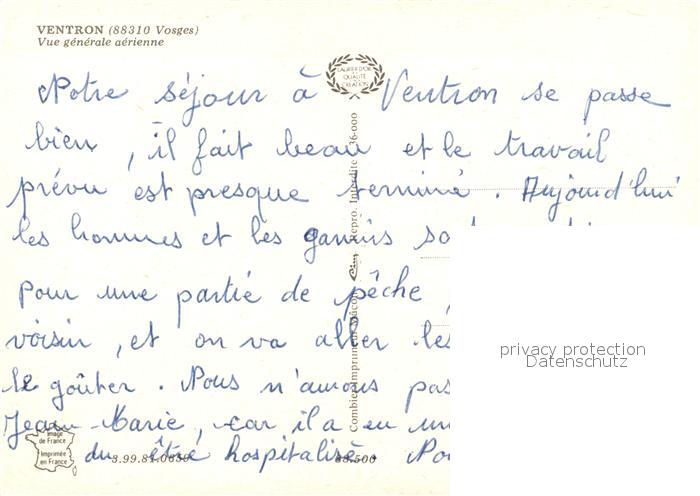 VENTRON (88310 Vosges)
Vue générale aérienne
LAURIER D'OR
QUALITÉ
CRÉATION
Notre séjour à Ventron se passe
bien, il fait beau et le travail
prévu est presque terminé. Aujourd'hui
les hommes et les gamins
pour une partie de pêche,
voisin, et on va aller les
le goûter. Nous n'aurons pas
Jean-Marie, car il a eu un
du être hospitalisé.
Combier Imprimeur Mâcon Cim Repro. Interdite 36-000
Image
de France
Imprimée
en France
3.99.81.0639
88.500
privacy protection
Datenschutz